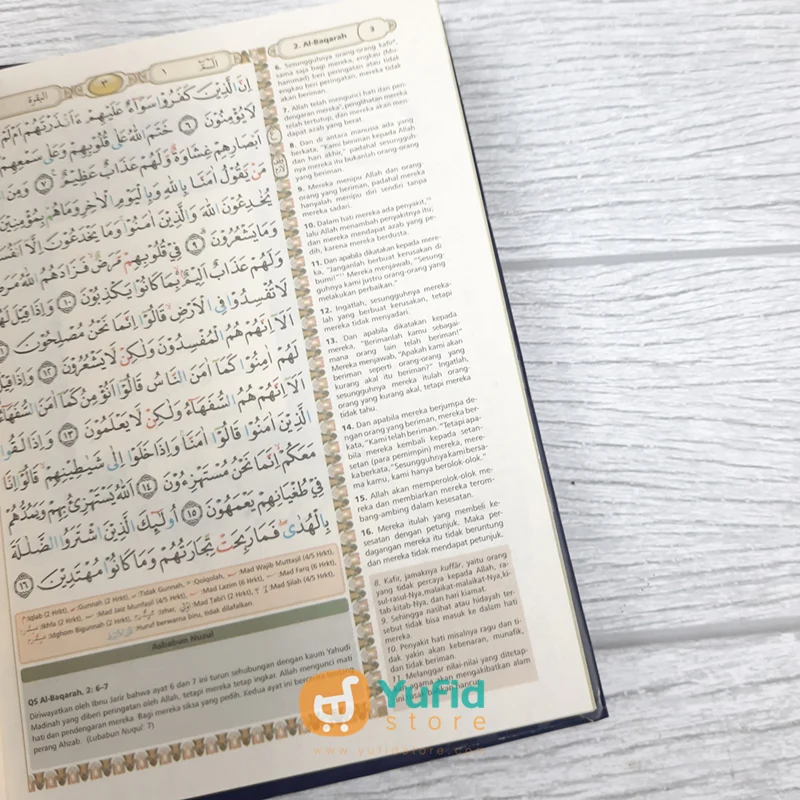 2. Al-Baqarah 3
البقرة ٣ السّمّ ١
إِنَّ الَّذِينَ كَفَرُوا سَوَاءٌ عَلَيْهِمْ ءَاَنْذَرْتَهُمْ اَمْ لَمْ
لَا يُؤْمِنُوْنَ ٦ خَتَمَ اللّٰهُ عَلٰى قُلُوْبِهِمْ وَعَلٰى سَمْعِهِمْ
اَبْصَارِهِمْ غِشَاوَةٌ وَّلَهُمْ عَذَابٌ عَظِيْمٌ ٧ وَمِنَ
مَنْ يَّقُوْلُ اٰمَنَّا بِاللّٰهِ وَبِالْيَوْمِ الْاٰخِرِ وَمَا هُمْ بِمُؤْمِنِيْنَ
يُخٰدِعُوْنَ اللّٰهَ وَالَّذِيْنَ اٰمَنُوْا وَمَا يَخْدَعُوْنَ اِلَّآ اَنْفُسَ
وَمَا يَشْعُرُوْنَ ٩ فِيْ قُلُوْبِهِمْ مَّرَضٌ فَزَادَهُمُ اللّٰهُ
وَلَهُمْ عَذَابٌ اَلِيْمٌ بِمَا كَانُوْا يَكْذِبُوْنَ ١٠ وَاِذَا قِيْلَ
لَا تُفْسِدُوْا فِى الْاَرْضِ قَالُوْٓا اِنَّمَا نَحْنُ مُصْلِحُوْنَ
اَلَآ اِنَّهُمْ هُمُ الْمُفْسِدُوْنَ وَلٰكِنْ لَّا يَشْعُرُوْنَ ١٢ وَاِذَا قِيْلَ
لَهُمْ اٰمِنُوْا كَمَآ اٰمَنَ النَّاسُ قَالُوْٓا اَنُؤْمِنُ كَمَآ اٰمَنَ السُّفَهَاۤءُ
اَلَآ اِنَّهُمْ هُمُ السُّفَهَاۤءُ وَلٰكِنْ لَّا يَعْلَمُوْنَ ١٣ وَاِذَا لَقُوا
الَّذِيْنَ اٰمَنُوْا قَالُوْٓا اٰمَنَّا وَاِذَا خَلَوْا اِلٰى شَيٰطِيْنِهِمْ قَالُوْٓا اِنَّا
مَعَكُمْ اِنَّمَا نَحْنُ مُسْتَهْزِءُوْنَ ١٤ اَللّٰهُ يَسْتَهْزِئُ بِهِمْ وَيَمُدُّهُمْ
فِيْ طُغْيَانِهِمْ يَعْمَهُوْنَ ١٥ اُولٰۤىِٕكَ الَّذِيْنَ اشْتَرَوُا الضَّلٰلَةَ
بِالْهُدٰى فَمَا رَبِحَتْ تِّجَارَتُهُمْ وَمَا كَانُوْا مُهْتَدِيْنَ ١٦
6. Sesungguhnya orang-orang kafir,
sama saja bagi mereka, engkau (Mu-
hammad) beri peringatan atau tidak
engkau beri peringatan, mereka tidak
akan beriman.
7. Allah telah mengunci hati dan pen-
dengaran mereka, penglihatan mereka
telah tertutup, dan mereka akan men-
dapat azab yang berat.
8. Dan di antara manusia ada yang
berkata, "Kami beriman kepada Allah
dan hari akhir," padahal sesungguh-
nya mereka itu bukanlah orang-orang
yang beriman.
9. Mereka menipu Allah dan orang-
orang yang beriman, padahal mereka
hanyalah menipu diri sendiri tanpa
mereka sadari.
10. Dalam hati mereka ada penyakit,
lalu Allah menambah penyakitnya itu;
dan mereka mendapat azab yang pe-
dih, karena mereka berdusta.
11. Dan apabila dikatakan kepada mere-
ka, "Janganlah berbuat kerusakan di
bumi!" Mereka menjawab, "Sesung-
guhnya kami justru orang-orang yang
melakukan perbaikan."
12. Ingatlah, sesungguhnya mereka-
lah yang berbuat kerusakan, tetapi
mereka tidak menyadari.
13. Dan apabila dikatakan kepada
mereka, "Berimanlah kamu sebagai-
mana orang lain telah beriman!"
Mereka menjawab, "Apakah kami akan
beriman seperti orang-orang yang
kurang akal itu beriman?" Ingatlah,
sesungguhnya mereka itulah orang-
orang yang kurang akal, tetapi mereka
tidak tahu.
14. Dan apabila mereka berjumpa de-
ngan orang yang beriman, mereka ber-
kata, "Kami telah beriman." Tetapi apa-
bila mereka kembali kepada setan-
setan (para pemimpin) mereka, mere-
ka berkata, "Sesungguhnya kami bersa-
ma kamu, kami hanya berolok-olok."
15. Allah akan memperolok-olok me-
reka dan membiarkan mereka terom-
bang-ambing dalam kesesatan.
16. Mereka itulah yang membeli ke-
sesatan dengan petunjuk. Maka per-
dagangan mereka itu tidak beruntung
dan mereka tidak mendapat petunjuk.
:Iqlab (2 Hrkt), :Gunnah (2 Hrkt), :Tidak Gunnah, :Qolqolah, :Mad Wajib Muttasil (4/5 Hrkt),
:Ikhfa (2 Hrkt), :Mad Jaiz Munfasil (4/5 Hrkt), :Mad Lazim (6 Hrkt), :Mad Farq (6 Hrkt),
:Idghom Bigunnah (2 Hrkt), :Izhar, :Mad Tabi'i (2 Hrkt), :Mad Silah (4/5 Hrkt),
:Huruf berwarna biru, tidak dilafalkan.
Asbabun Nuzul
QS Al-Baqarah, 2: 6-7
Diriwayatkan oleh Ibnu Jarir bahwa ayat 6 dan 7 ini turun sehubungan dengan kaum Yahudi
Madinah yang diberi peringatan oleh Allah, tetapi mereka tetap ingkar. Allah mengunci mati
hati dan pendengaran mereka. Bagi mereka siksa yang pedih. Kedua ayat ini bercerita tentang
perang Ahzab. (Lubabun Nuqul: 7)
8. Kafir, jamaknya kuffār, yaitu orang
yang tidak percaya kepada Allah, ra-
sul-rasul-Nya, malaikat-malaikat-Nya, ki-
tab-kitab-Nya, dan hari kiamat.
9. Sehingga nasihat atau hidayah ter-
sebut tidak bisa masuk ke dalam hati
mereka.
10. Penyakit hati misalnya ragu dan ti-
dak yakin akan kebenaran, munafik,
dan tidak beriman.
11. Melanggar nilai-nilai yang ditetap-
agama akan mengakibatkan alam
Yufid
store
www.yufidstore.com